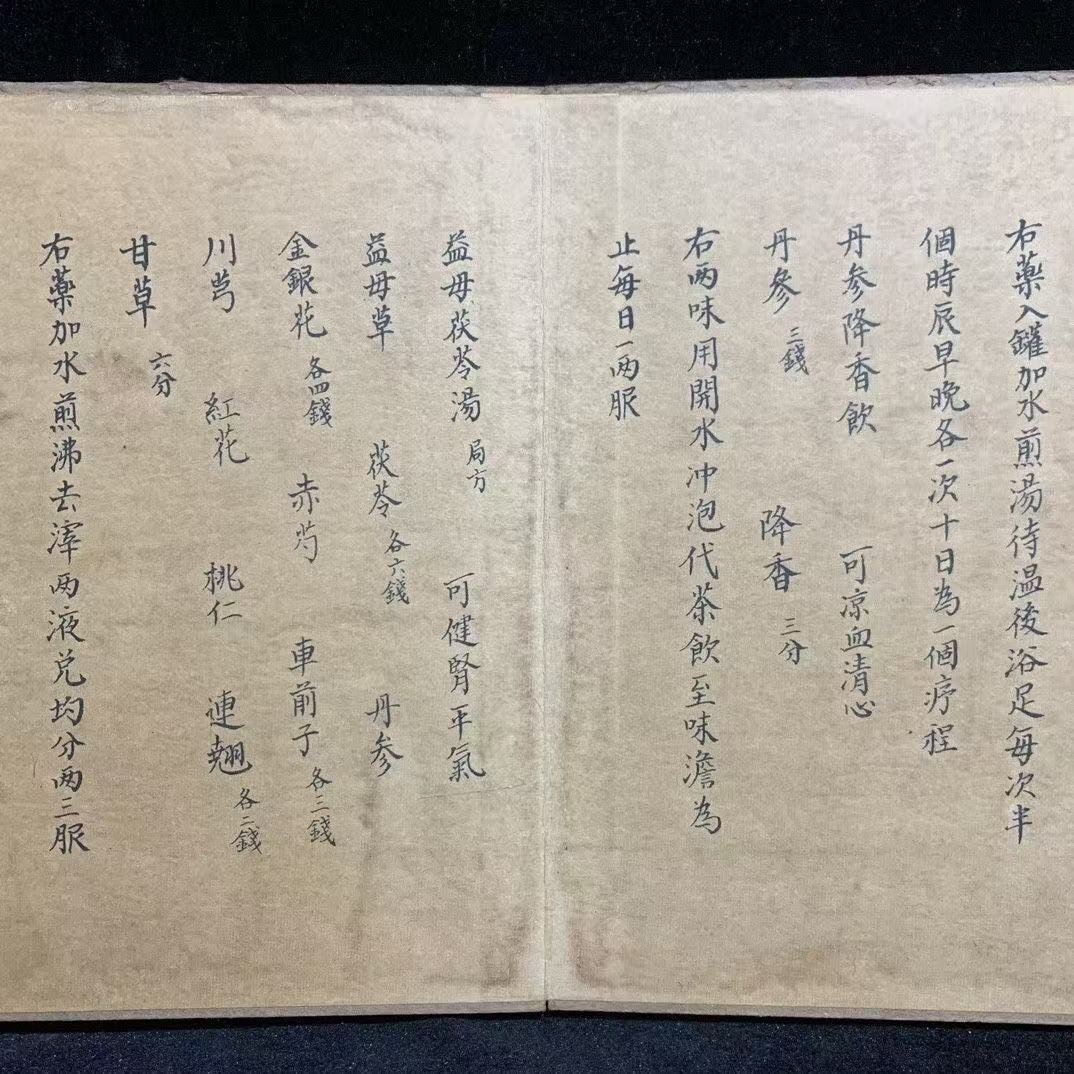 右藥入罐加水煎湯待温後浴足每次半
個時辰早晚各一次十日為一個疗程
丹参降香飲 可凉血清心
丹參 三錢 降香 三分
右两味用開水冲泡代茶飲至味澹為
止每日一两服
益母茯苓湯 局方 可健腎平氣
益母草 茯苓 各六錢 丹参
金銀花 各四錢 赤芍 車前子 各三錢
川芎 紅花 桃仁 連翹 各二錢
甘草 六分
右藥加水煎沸去滓两液兑均分两三服